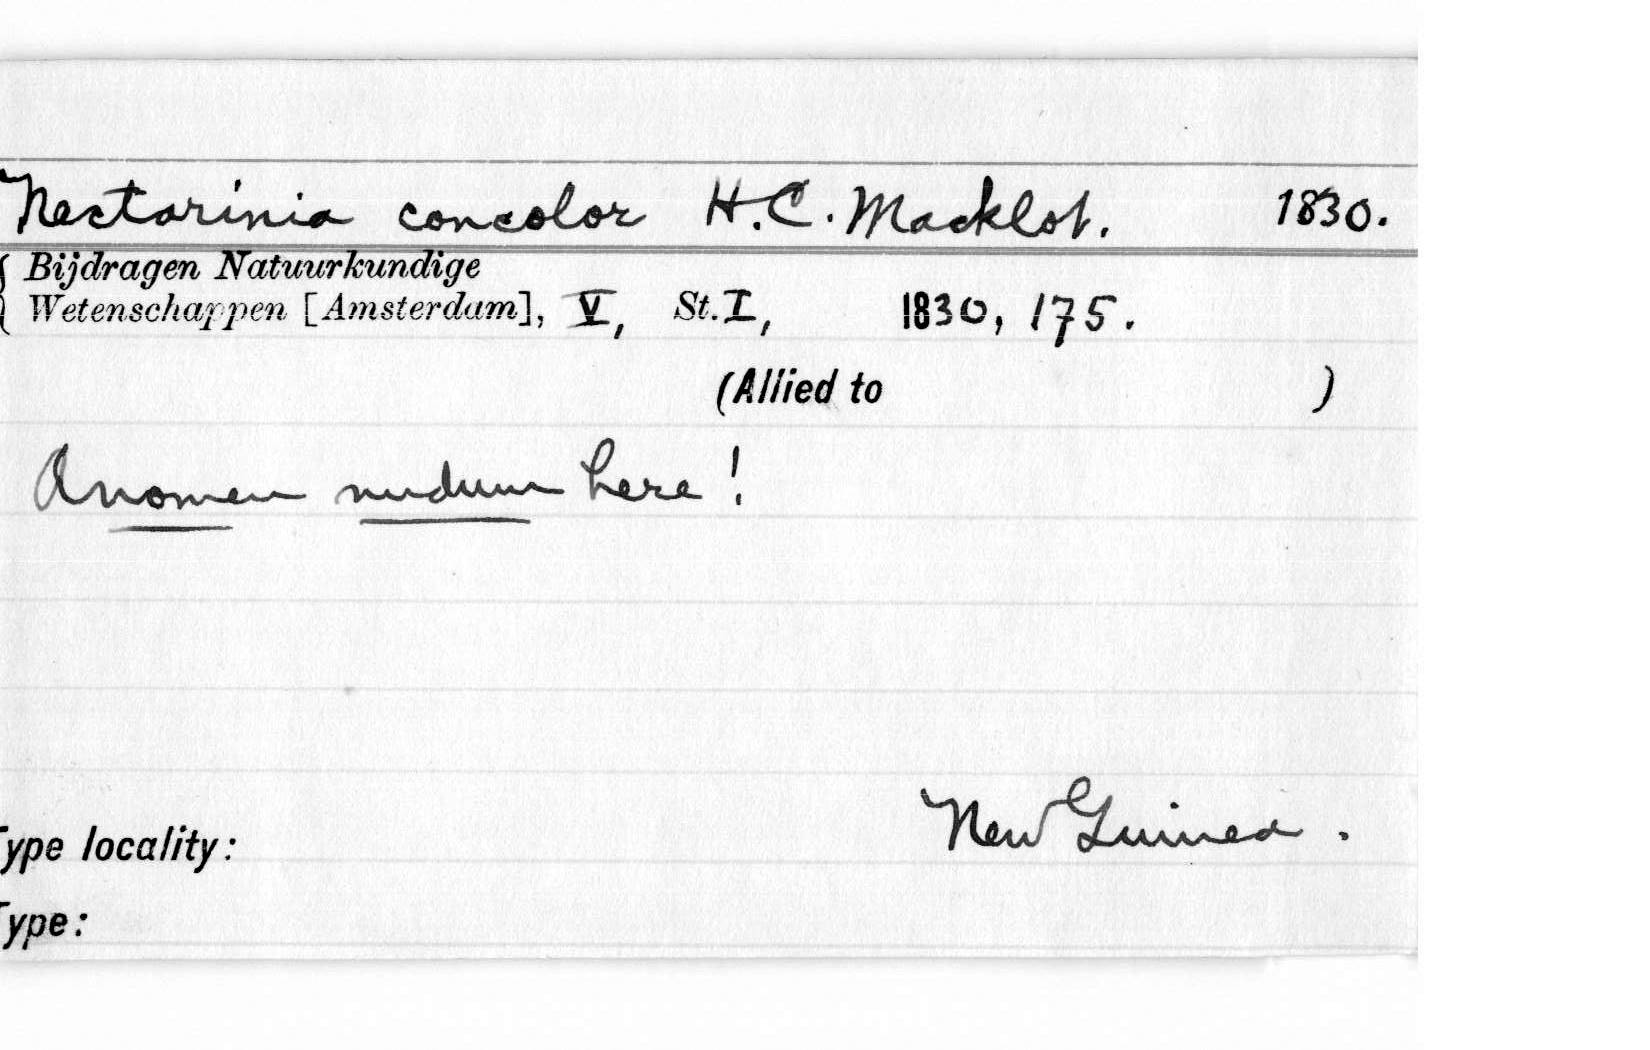 Nectarinia concolor H.C. Macklot. 1830.
Bijdragen Natuurkundige
Wetenschappen [Amsterdam], V, St. I, 1830, 175.
(Allied to )
A nomen nudum here!
New Guinea.
Type locality:
Type: